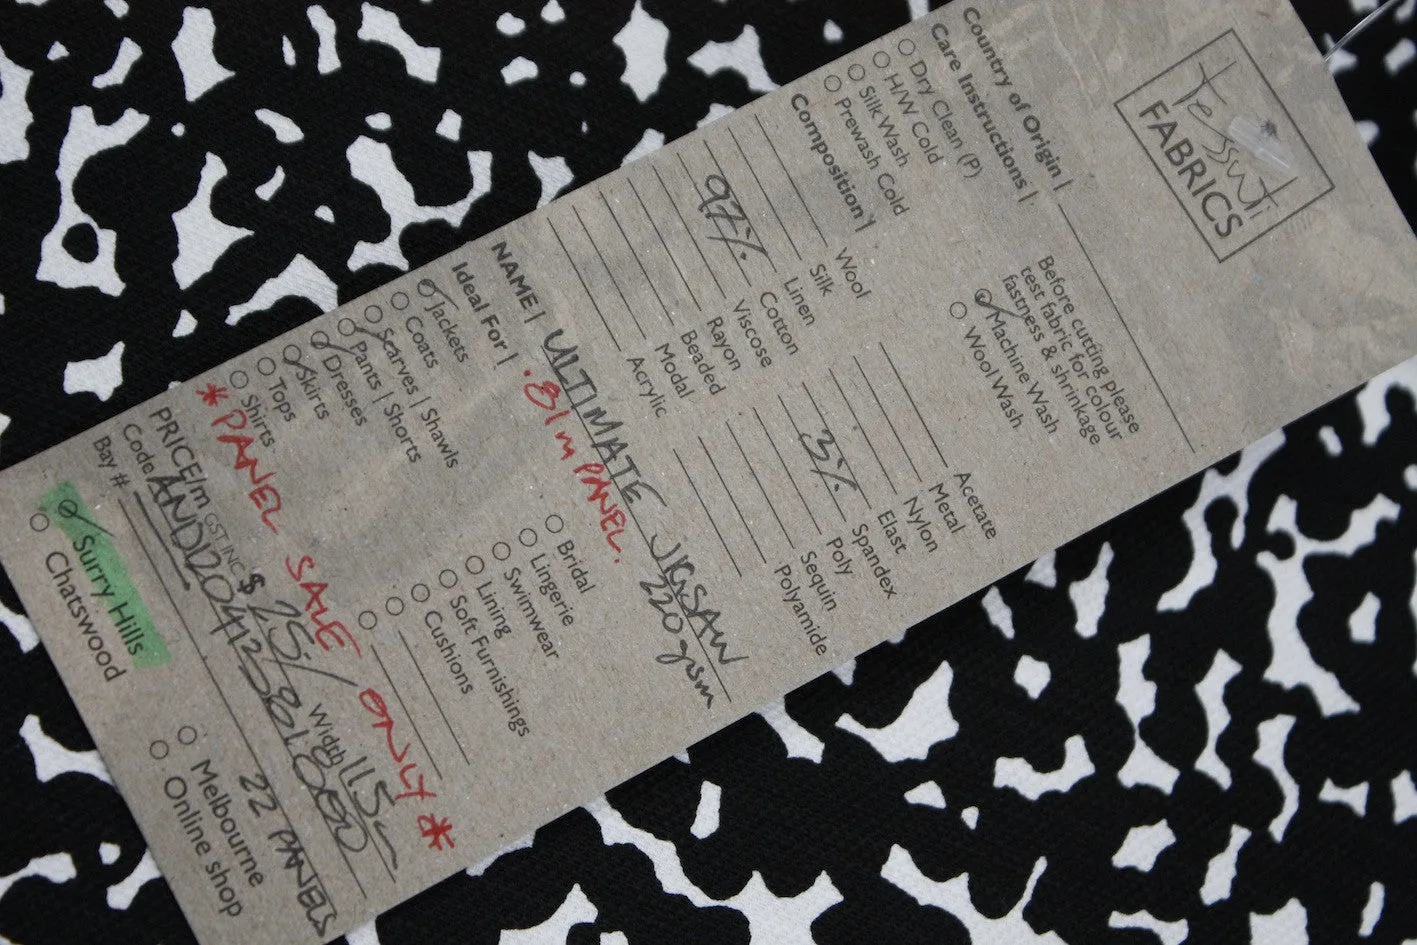 Tessuti
FABRICS
Country of Origin |
Care Instructions |
Dry Clean (P)
H/W Cold
Silk Wash
Prewash Cold
Before cutting please
test fabric for colour
fastness & shrinkage
Machine Wash
Wool Wash
Composition |
Wool
Silk
Linen
97% Cotton
Viscose
Rayon
Beaded
Modal
Acrylic
Acetate
Metal
Nylon
Elast
3% Spandex
Poly
Sequin
Polyamide
NAME | ULTIMATE JIGSAW
220gsm
Ideal For | .81m PANEL.
Jackets
Coats
Scarves | Shawls
Pants | Shorts
Dresses
Skirts
Tops
Shirts
Bridal
Lingerie
Swimwear
Lining
Soft Furnishings
Cushions
*PANEL SALE ONLY*
PRICE/m GST INC $ 25/ Width 115
Code
Bay # 22 PANELS
Surry Hills
Chatswood
Melbourne
Online shop